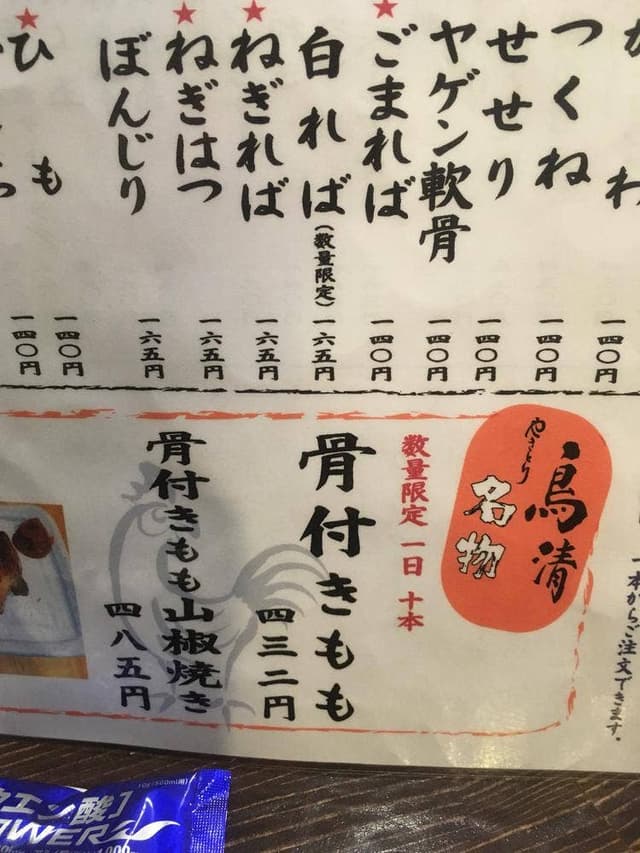 つくね
一四〇円
せせり
一四〇円
ヤゲン軟骨
一四〇円
★
ごまれば
一四〇円
白れば(数量限定)
一六五円
★
ねぎれば
一六五円
★
ねぎはつ
一六五円
ぼんじり
一六五円
一四〇円
一四〇円
★
ひも
一四〇円
やきとり
鳥清
名物
数量限定 一日 十本
骨付きもも
四三二円
骨付きもも山椒焼き
四八五円
一本からご注文できます。
エン酸